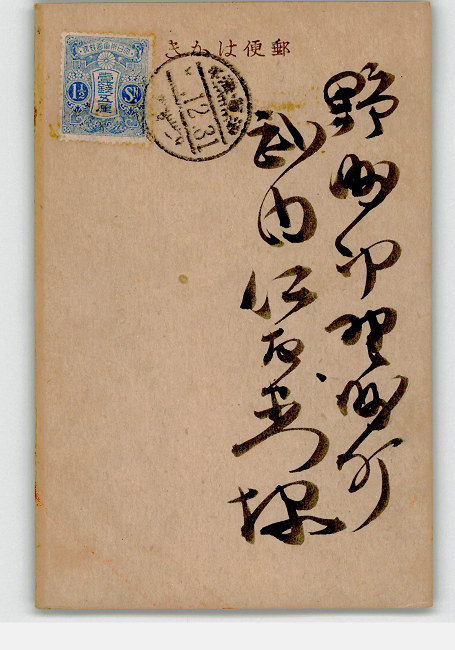 郵便はかき
大日本帝國郵便
壹錢五厘
1½ Sn
12.31
野洲郡野洲町
武内仁右衛門様